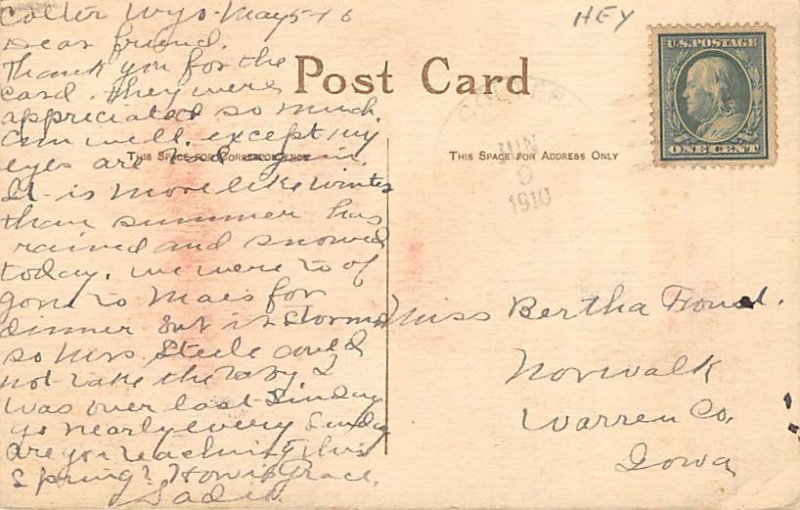 Colter Wyo. May 5-16
Dear friend.
Thank you for the
card. they were
appreciated so much.
am well. except my
eyes are bad again.
It is more like winter
than summer has
rained and snowed
today. we were to of
gone to Maes for
dinner but it stormed
so Mrs. Steele could
not take the baby I
was over last Sunday
go nearly every Sunday
are you teaching this
Spring? How is Grace.
Sadie.
HEY
Post Card
THIS SPACE FOR CORRESPONDENCE
THIS SPACE FOR ADDRESS ONLY
U.S. POSTAGE
ONE CENT
JUN
1910
Miss Bertha
Norwalk
Warren Co.
Iowa